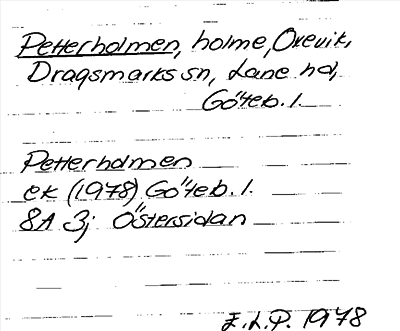 Petterholmen, holme, Oxevik,
Dragsmarks sn, Lane hd,
Göteb. l.
Petterholmen
ek (1978) Göteb. l.
8A 3j Östersidan
E.L.P. 1978